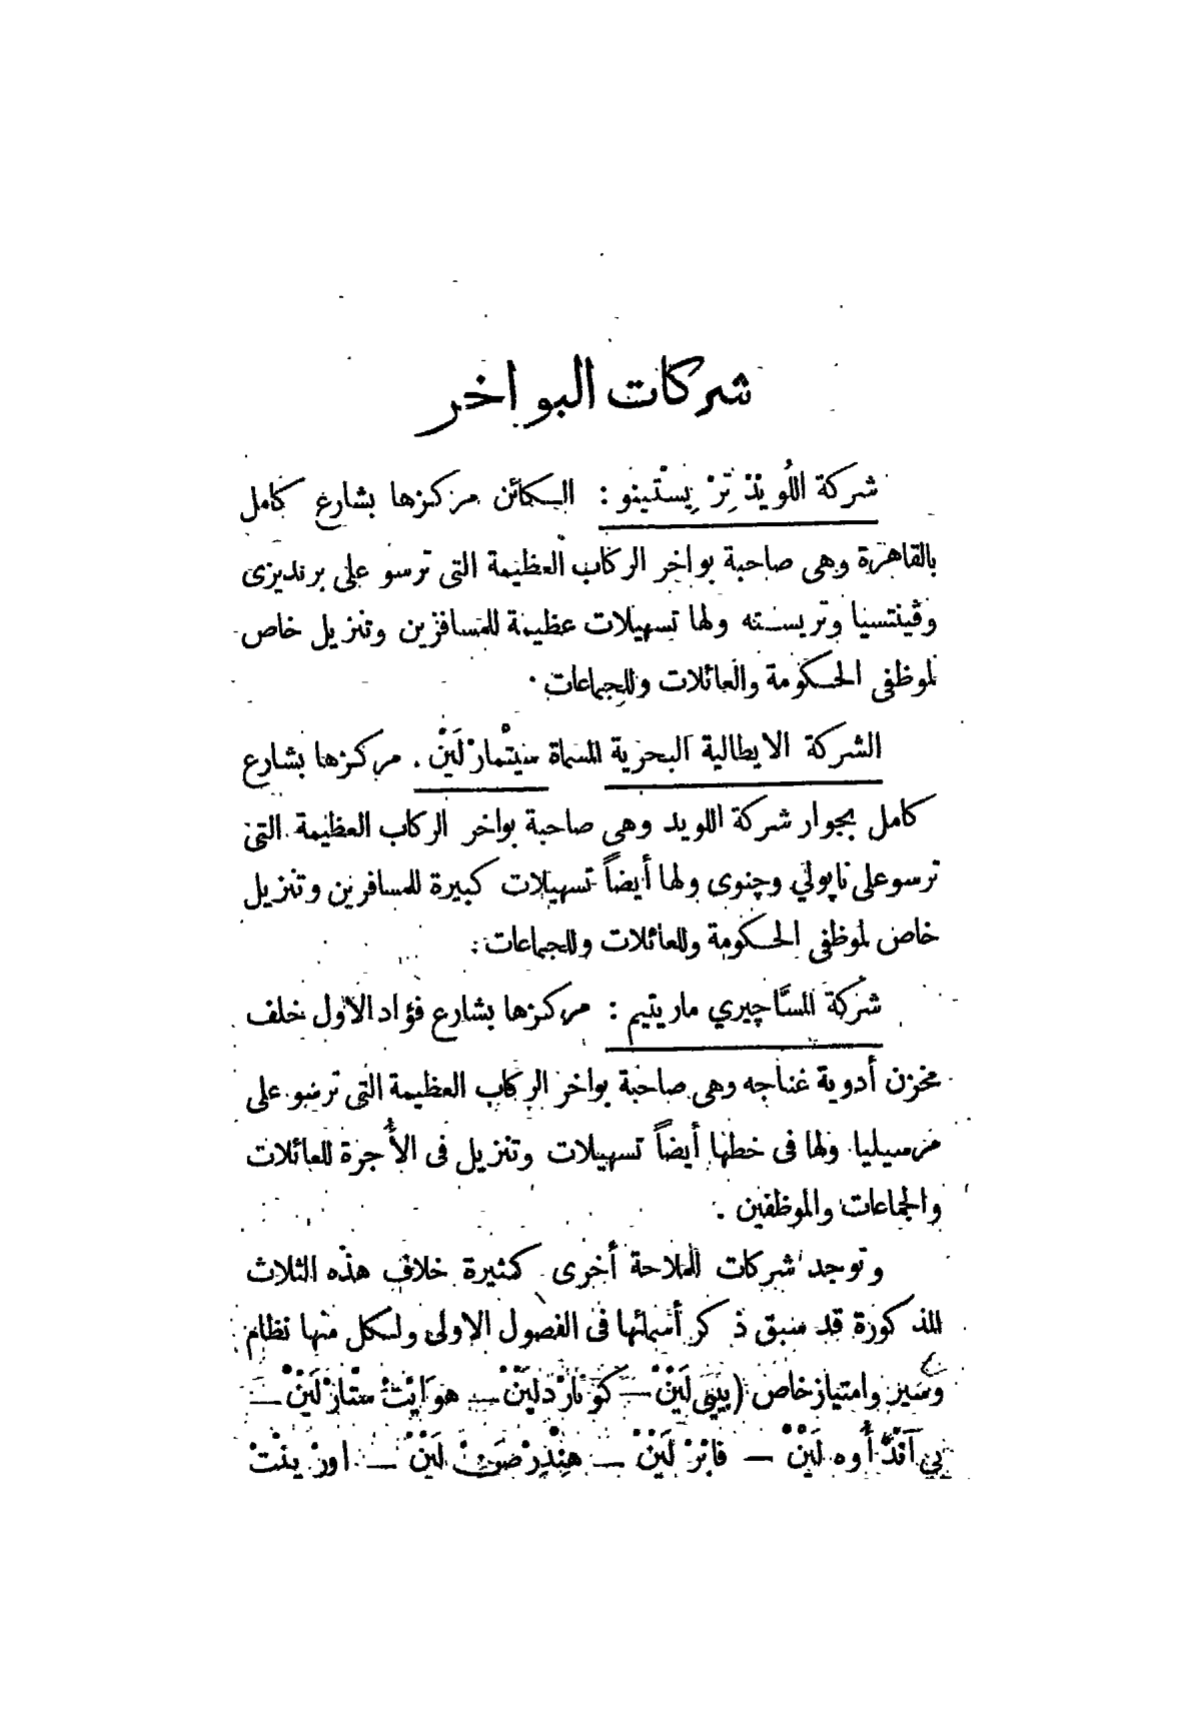 شركات البواخر
شركة اللُويْدْ تِرْيِسْتينو : الكائن مركزها بشارع كامل
بالقاهرة وهى صاحبة بواخر الركاب العظيمة التى ترسو على برنديزى
وڤينتسيا وتريسته ولها تسهيلات عظيمة للمسافرين وتنزيل خاص
لموظفى الحكومة والعائلات وللجماعات .
الشركة الايطالية البحرية المسماة سيتْمارْ لَيَنْ . مركزها بشارع
كامل بجوار شركة اللويد وهى صاحبة بواخر الركاب العظيمة التى
ترسو على ناپولي وچنوى ولها أيضاً تسهيلات كبيرة للمسافرين وتنزيل
خاص لموظفى الحكومة وللعائلات وللجماعات :
شركة المسَّاچيري ماريتيم : مركزها بشارع فؤاد الاول خلف
مخزن أدوية غناجه وهى صاحبة بواخر الركاب العظيمة التى ترسو على
مرسيليا ولها فى خطها أيضاً تسهيلات وتنزيل فى الأجرة للعائلات
والجماعات والموظفين .
وتوجد شركات للملاحة أخرى كثيرة خلاف هذه الثلاث
المذكورة قد سبق ذكر أسمائها فى الفصول الاولى ولكل منها نظام
وسير وامتياز خاص (بيبى لَيَنْ — كونارْد لَيَنْ — هوَايْتْ ستارْ لَيَنْ —
پي آنْدْ أُوه لَيَنْ — فابْرْ لَيَنْ — هِنْدِرْصَنْ لَيَنْ — اورْيِنْتْ